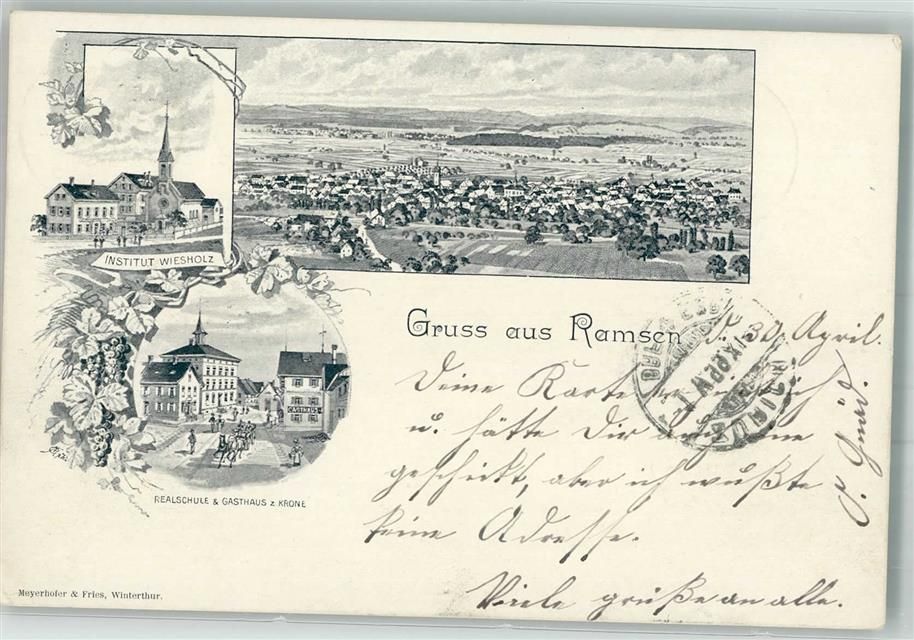 INSTITUT WIESHOLZ
Gruss aus Ramsen
d. 30. April.
Deine Karte
u. hätte Dir
geschickt, aber ich wußte
keine Adresse.
Viele grüße an alle.
GASTHAUS
REALSCHULE & GASTHAUS z. KRONE
Meyerhofer & Fries, Winterthur.